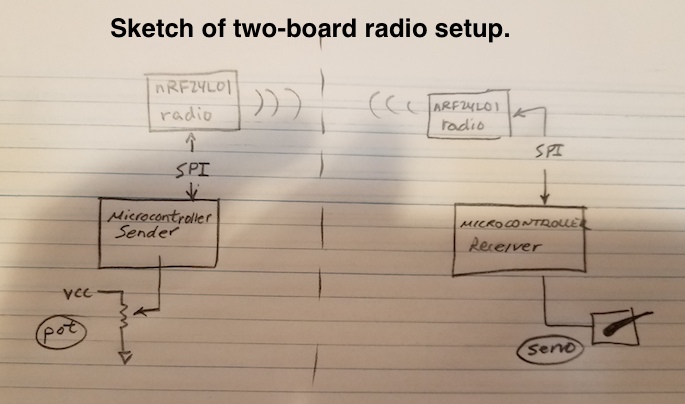 Sketch of two-board radio setup.
nRF24L01
radio
SPI
Microcontroller
Sender
VCC
pot
nRF24L01
radio
SPI
MICROCONTROLLER
Receiver
servo